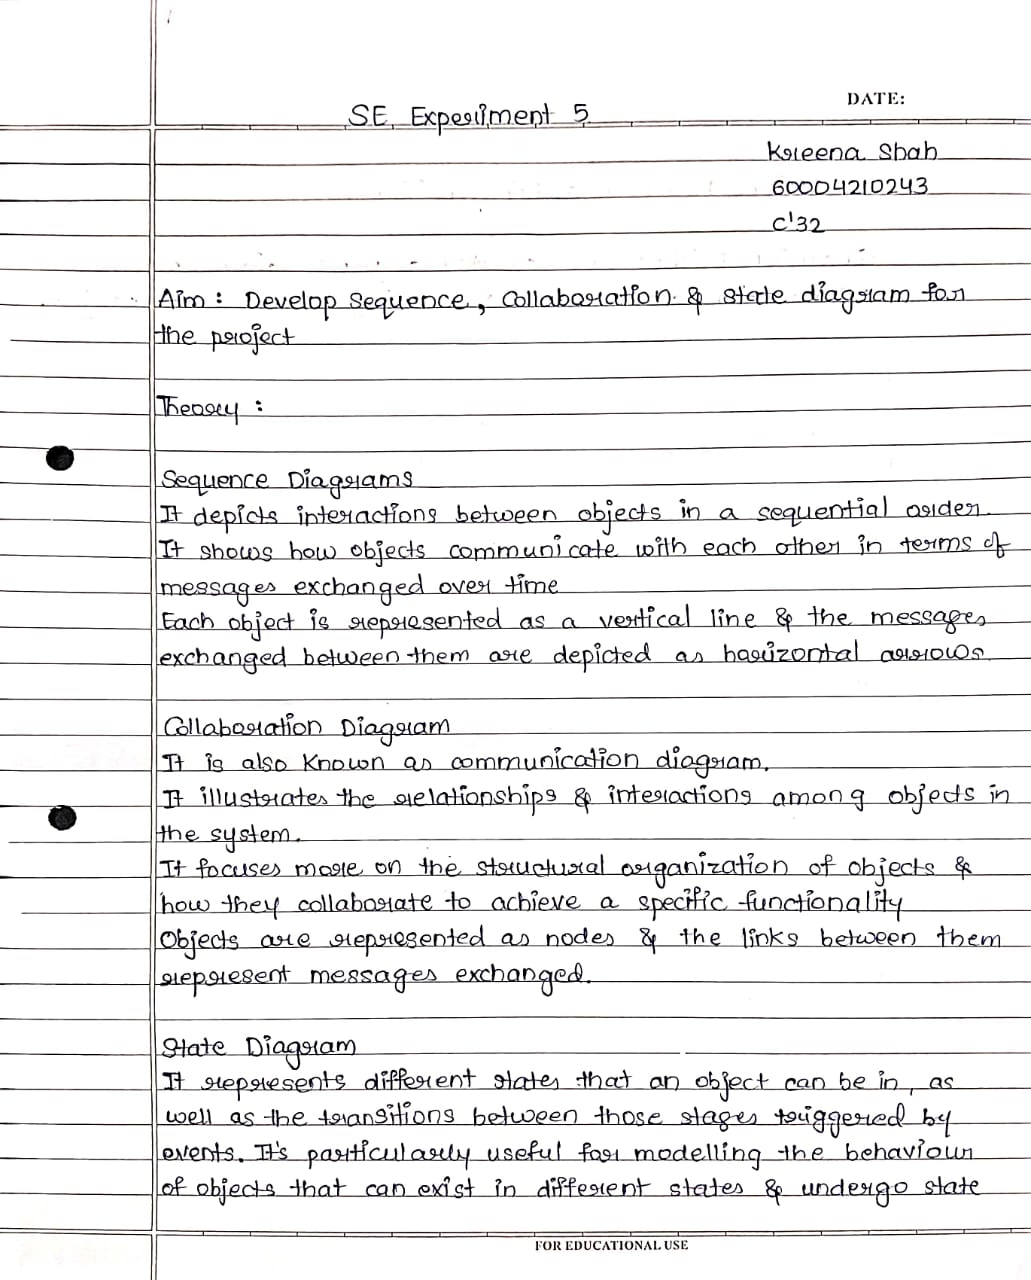 DATE:
SE Experiment 5
Kreena Shah
60004210243
C'32
Aim : Develop Sequence, Collaboration & state diagram for
the project
Theory :
Sequence Diagrams
It depicts interactions between objects in a sequential order.
It shows how objects communicate with each other in terms of
messages exchanged over time
Each object is represented as a vertical line & the messages
exchanged between them are depicted as horizontal arrows
Collaboration Diagram
It is also known as communication diagram.
It illustrates the relationships & interactions among objects in
the system.
It focuses more on the structural organization of objects &
how they collaborate to achieve a specific functionality
Objects are represented as nodes & the links between them
represent messages exchanged.
State Diagram
It represents different states that an object can be in, as
well as the transitions between those stages triggered by
events. It's particularly useful for modelling the behaviour
of objects that can exist in different states & undergo state
FOR EDUCATIONAL USE